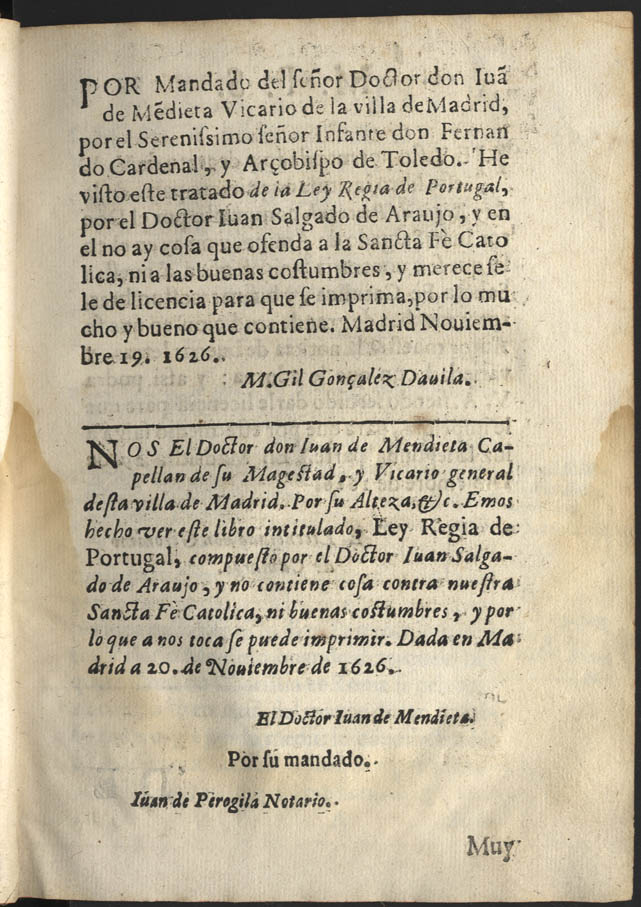 POR Mandado del ſeñor Doctor don Iuã
de Mẽdieta Vicario de la villa de Madrid,
por el Sereniſsimo ſeñor Infante don Fernan
do Cardenal, y Arçobiſpo de Toledo. He
viſto eſte tratado de la Ley Regia de Portugal,
por el Doctor Iuan Salgado de Araujo, y en
el no ay coſa que ofenda a la Sancta Fè Cato
lica, ni a las buenas coſtumbres, y merece ſe
le de licencia para que ſe imprima, por lo mu
cho y bueno que contiene. Madrid Nouiem-
bre 19. 1626.
M. Gil Gonçalez Dauila.
NOS El Doctor don Iuan de Mendieta Ca-
pellan de ſu Mageſtad, y Vicario general
deſta villa de Madrid. Por ſu Alteza, &c. Emos
hecho ver eſte libro intitulado, Ley Regia de
Portugal, compueſto por el Doctor Iuan Salga-
do de Araujo, y no contiene coſa contra nueſtra
Sancta Fè Catolica, ni buenas coſtumbres, y por
lo que a nos toca ſe puede imprimir. Dada en Ma
drid a 20. de Nouiembre de 1626.
El Doctor Iuan de Mendieta.
Por ſu mandado.
Iuan de Perogila Notario.
Muy